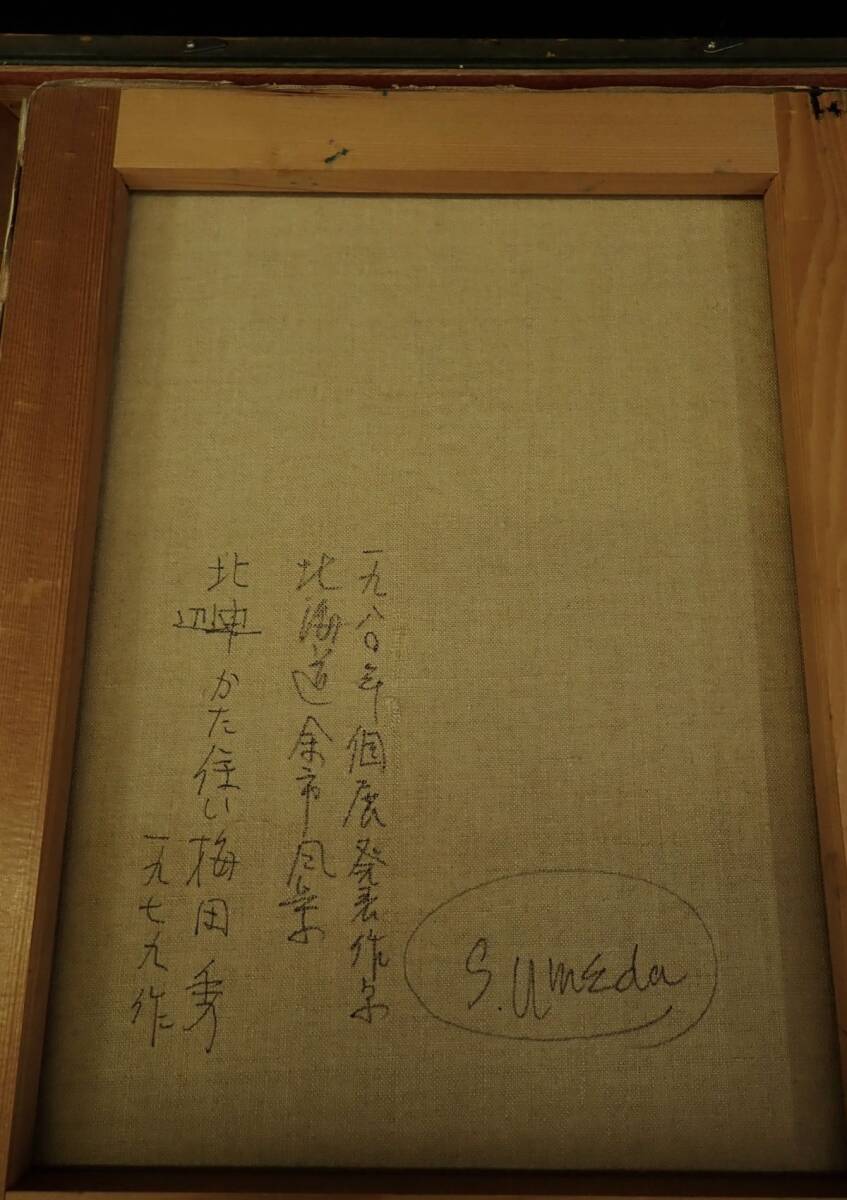 一九八〇年個展発表作品
北海道余市風景
北辺かた住い 梅田 秀
一九七九作
S. Umeda